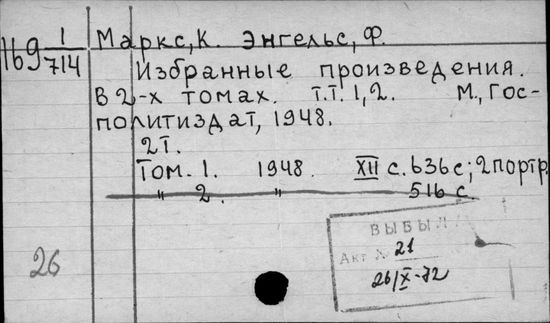 169 1/714
Маркс, К. Энгельс, Ф.
Избранные произведения.
В 2-х томах. Т.Т. 1, 2. М., Гос-
политиздат, 1948.
2Т.
Том. 1. 1948. XII с. 636 с; 2 портр.
" 2. " 516 с.
26
ВЫБЫЛ
Акт № 21
26/X-72